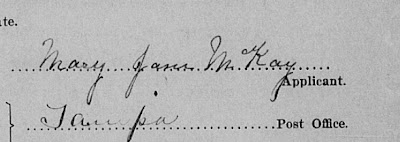 ate.
Mary Jane McKay
Applicant.
Tampa
Post Office.